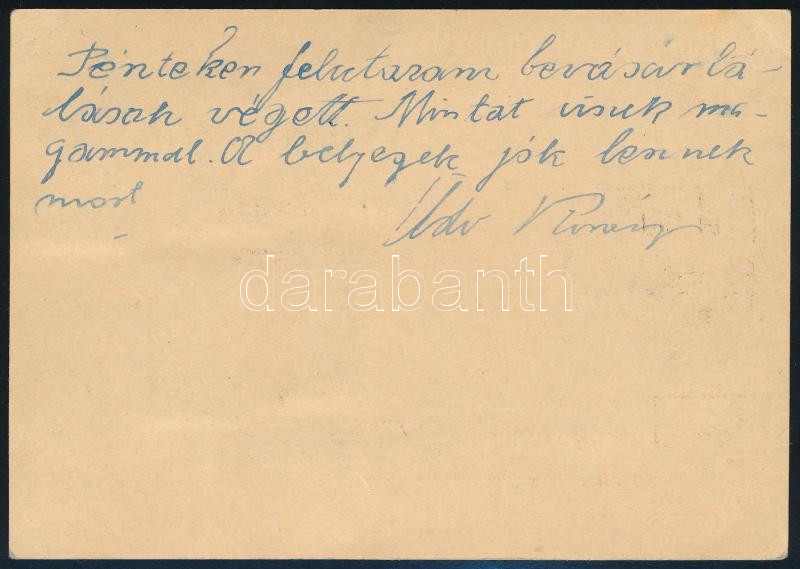 Pénteken felutazam bevásárlá-
lások végett. Mintát viszek ma-
gammal. A bélyegek jók lennének
most
Üdv
darabanth